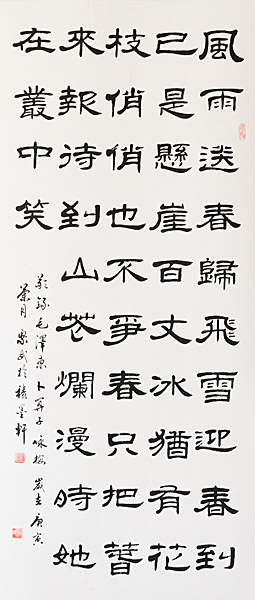 風雨送春歸飛雪迎春到
已是懸崖百丈冰猶有花
枝俏俏也不爭春只把春
來報待到山花爛漫時她
在叢中笑
敬錄毛澤東卜算子咏梅歲在庚寅
月於積墨軒